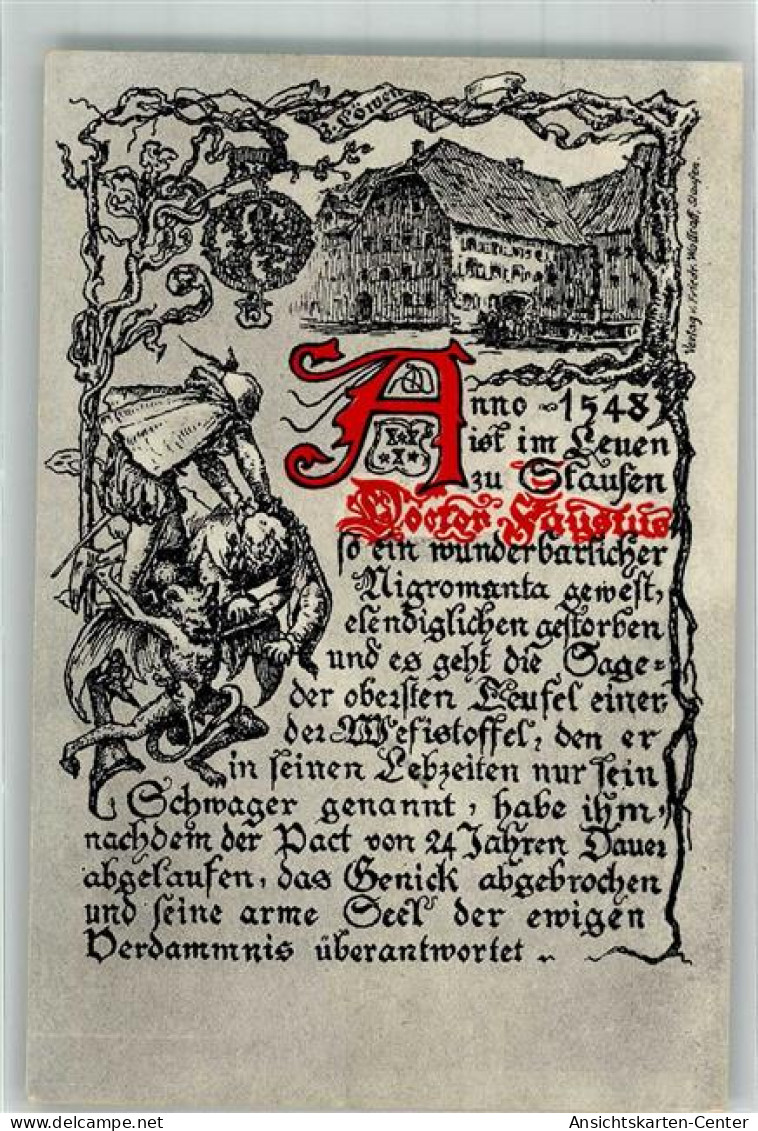 z. Löwen
Verlag v. Friedr. Wallraff, Staufen.
Anno 1548
ist im Leuen
zu Staufen
Doctor Faustus
so ein wunderbarlicher
Nigromanta gewest,
elendiglichen gestorben
und es geht die Sage
der obersten Teufel einer
der Mefistoffel, den er
in seinen Lebzeiten nur sein
Schwager genannt, habe ihm,
nachdem der Pact von 24 Jahren Dauer
abgelaufen, das Genick abgebrochen
und seine arme Seel der ewigen
Verdammnis überantwortet.
Ansichtskarten-Center